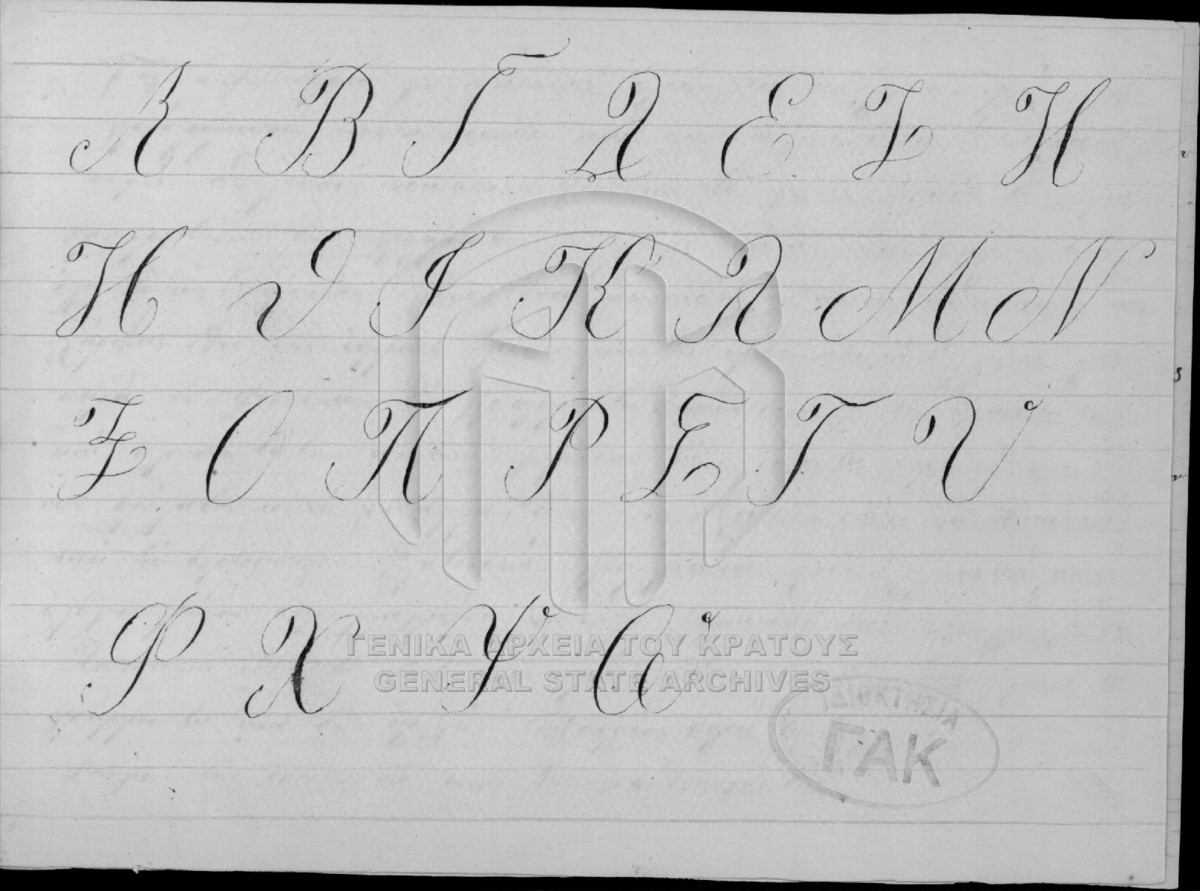 Α Β Γ Δ Ε Ζ Η
Η Θ Ι Κ Λ Μ Ν
Ξ Ο Π Ρ Σ Τ Υ
Φ Χ Ψ Ω
ΓΕΝΙΚΑ ΑΡΧΕΙΑ ΤΟΥ ΚΡΑΤΟΥΣ
GENERAL STATE ARCHIVES
ΙΔΙΟΚΤΗΣΙΑ
ΓΑΚ